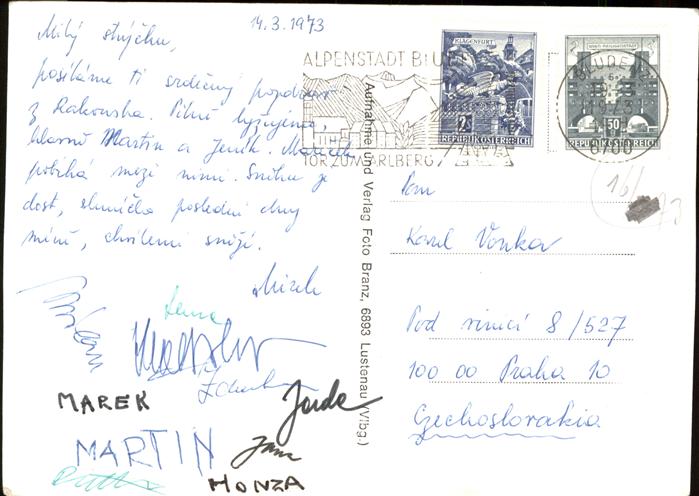 14.3.1973
Milý strýčku,
posíláme ti srdečný pozdrav
z Rakouska. Pilně lyžujeme,
hlavně Martin a Jeník. Mareček
pobíhá mezi nimi. Sněhu je
dost, sluníčko poslední dny
méně, chvílemi sněží.
Mirek
MAREK
MARTIN
HONZA
Jarda
Jana
ALPENSTADT BLUDENZ
TOR ZUM ARLBERG
KLAGENFURT
2S
REPUBLIK ÖSTERREICH
50
REPUBLIK ÖSTERREICH
BLUDENZ
6700
Aufnahme und Verlag Foto Branz, 6893 Lustenau (Vlbg.)
16/
73
Pan
Karel Vonka
Pod vinicí 8/527
100 00 Praha 10
Czechoslovakia